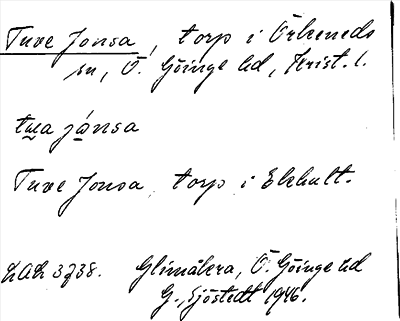 Tuve Jonsa, torp i Örkeneds
sn, Ö. Göinge hd, Krist. l.
twa jånsa
Tuve Jonsa, torp i Ekhult.
LAL 3738. Glimåkra, Ö. Göinge hd
G. Sjöstedt 1946.